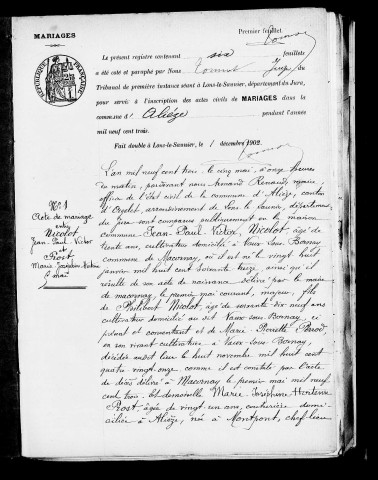 Premier feuillet.
MARIAGES
Le présent registre contenant six feuillets
a été coté et paraphé par Nous Juge au
Tribunal de première instance séant à Lons-le-Saunier, département du Jura,
pour servir à l'inscription des actes civils de MARIAGES dans la
commune d' Alièze pendant l'année
mil neuf cent trois.
Fait double à Lons-le-Saunier, le 1 décembre 1902.
RÉPUBLIQUE FRANÇAISE
N° 1
Acte de mariage
entre
Nicolot
Jean Paul Victor
et
Prost
Marie Joséphine Hortense
5 mai
L'an mil neuf cent trois, le cinq mai, à onze heures
du matin, pardevant nous Armand Renaud, maire
officier de l'état civil de la commune d'Alièze, canton
d'Orgelet, arrondissement de Lons le Saunier, département
du Jura sont comparus publiquement en la maison
commune Jean Paul Victor Nicolot, âgé de
trente ans, cultivateur domicilié à Vaux sous Bornay
commune de Macornay, où il est né le vingt huit
janvier mil huit cent soixante treize, ainsi qu'il
résulte de son acte de naissance délivré par le maire
de Macornay, le premier mai courant, majeur, fils
de Nicolot, âgé de soixante dix neuf ans
cultivateur domicilié au dit Vaux sous Bornay, ci
présent et consentant et de Marie
en son vivant cultivatrice à Vaux sous Bornay
décédée audit lieu le huit novembre mil huit cent
quatre vingt onze comme il est constaté par l'acte
de décès délivré à Macornay le premier mai mil neuf
cent trois. Et demoiselle Marie Joséphine Hortense
Prost, âgée de vingt un ans, couturière domi-
ciliée à Alièze, née à Montpont, chef lieu